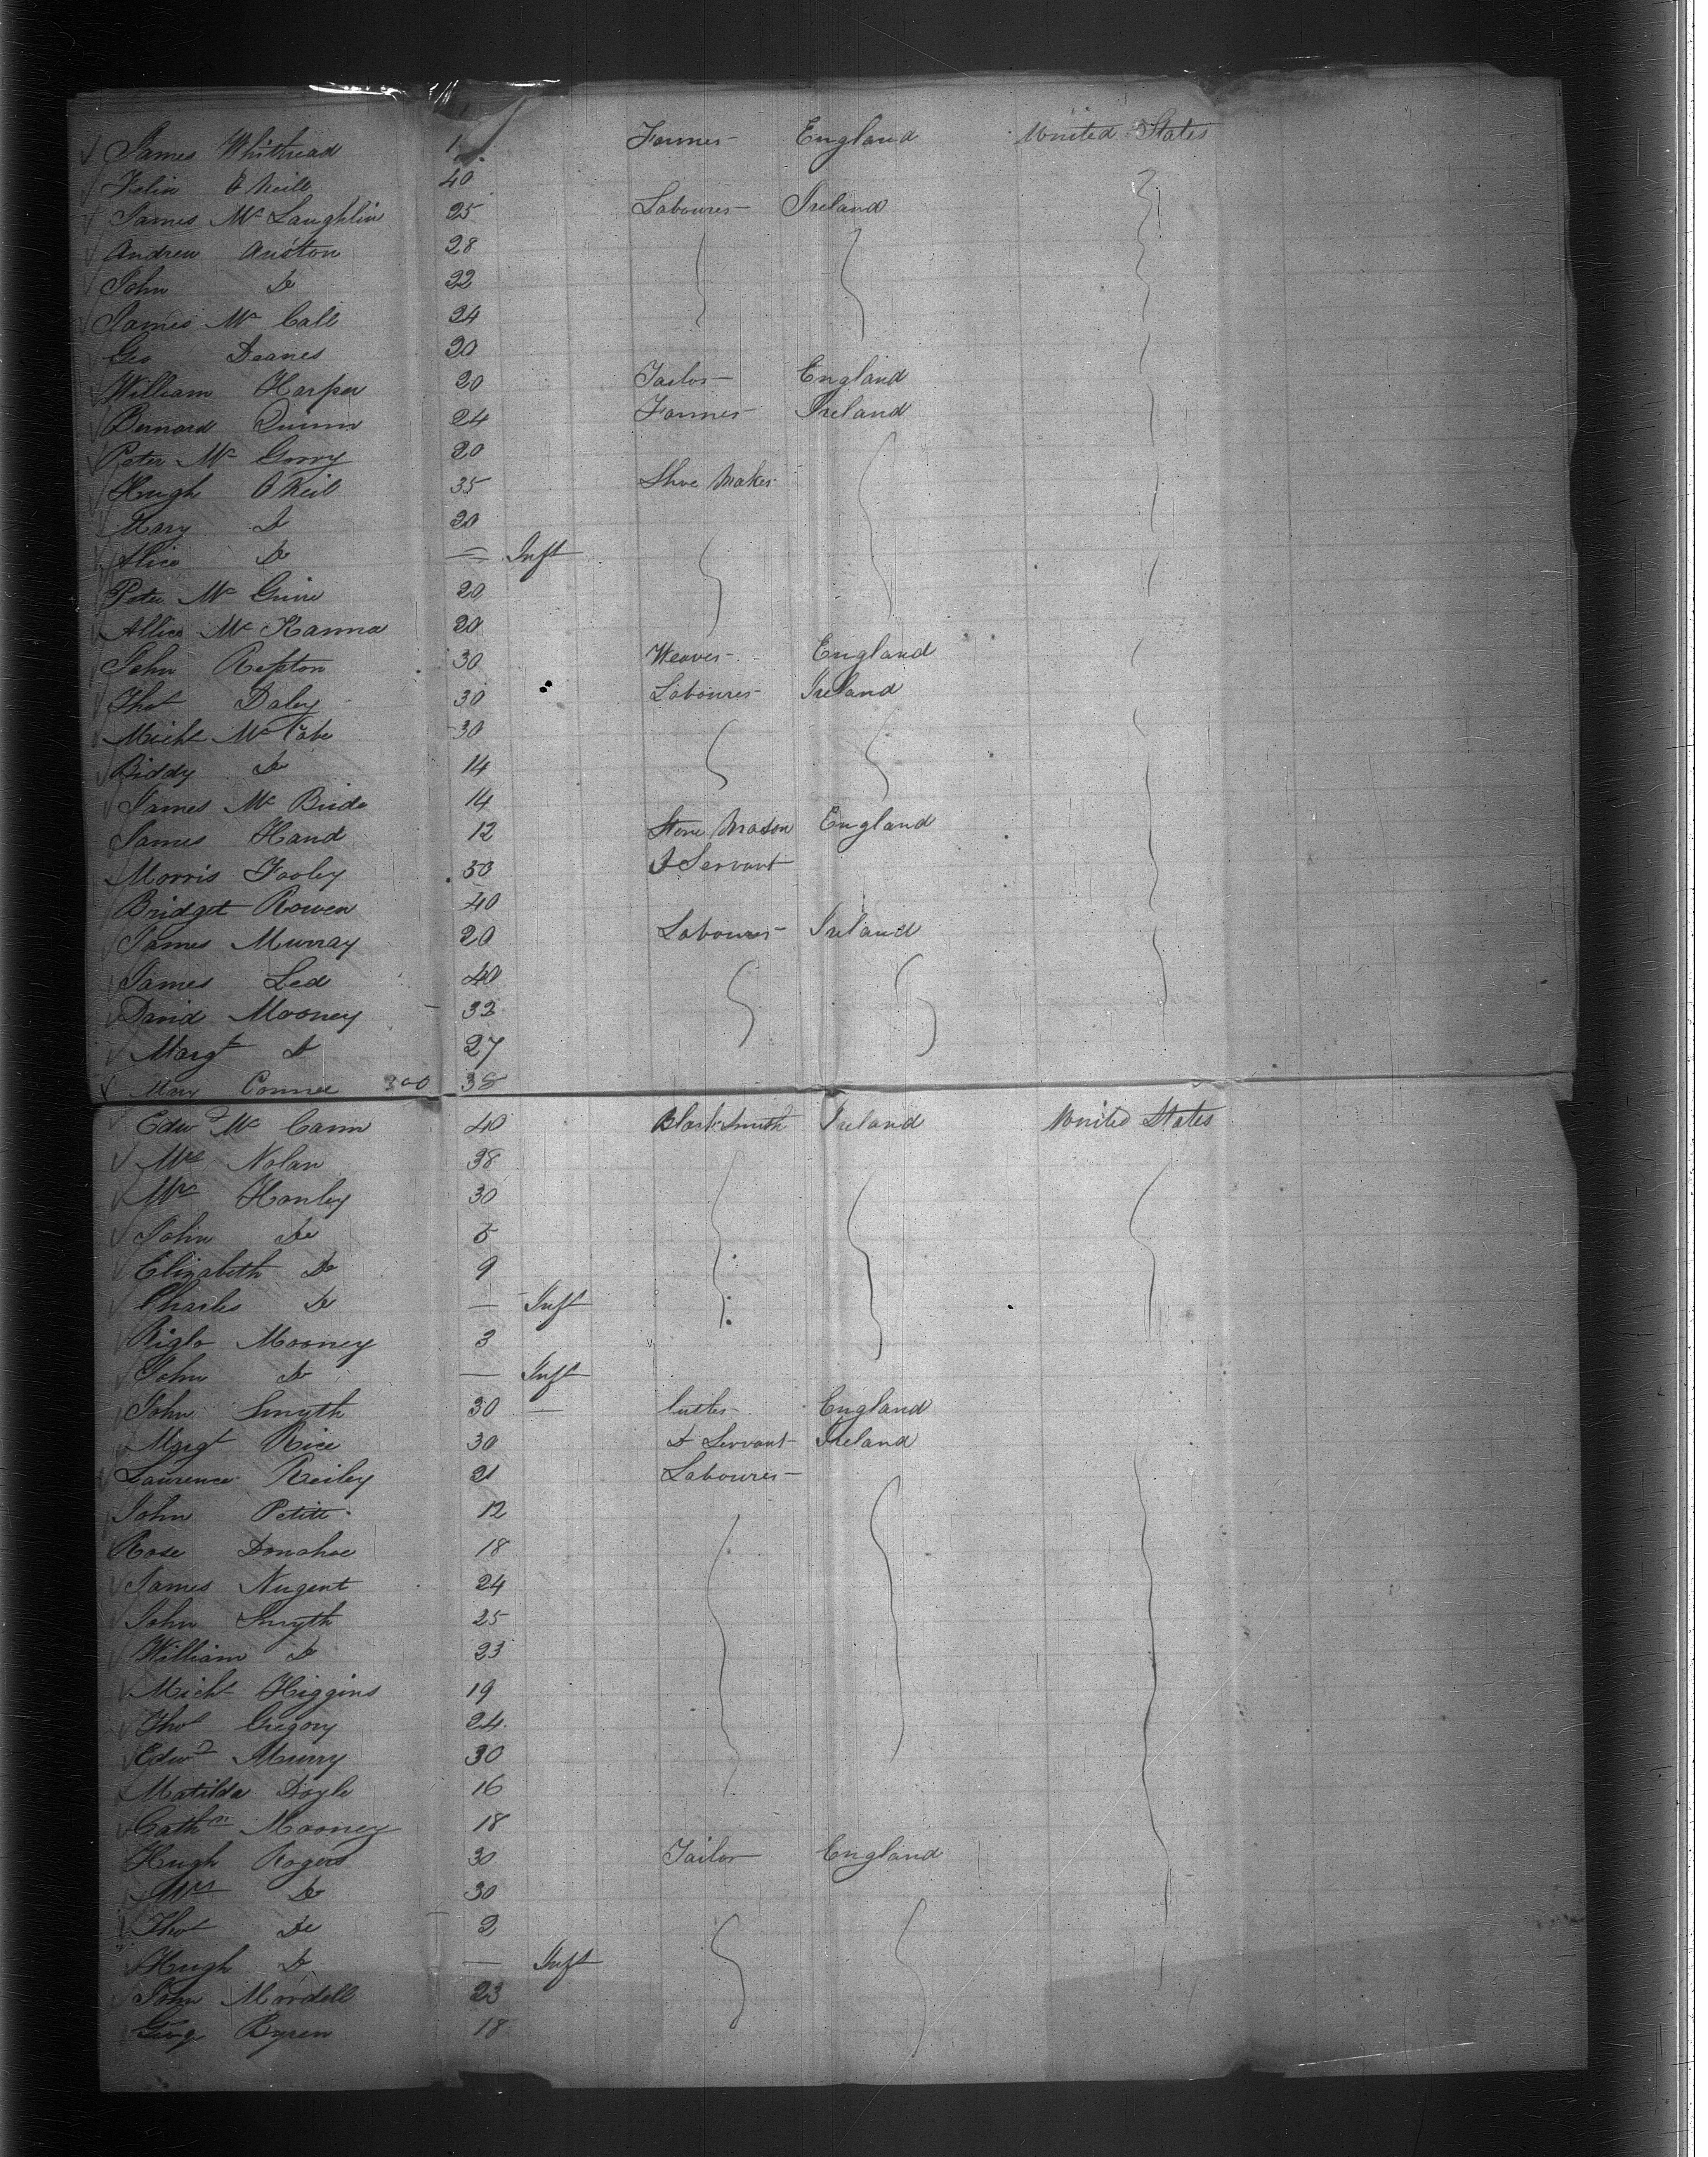 James Whithead 1 Farmer England United States
Felix O Neill 40
James Mc Laughlin 25 Labourer Ireland
Andrew Auston 28
John Do 22
James Mc Call 24
Geo Deanes 20
William Harper 20 Tailor England
Bernard Quinn 24 Farmer Ireland
Peter Mc Gorry 20
Hugh O Neil 35 Shoe Maker
Mary Do 20
Alice Do — Inft
Peter Mc Guire 20
Allice Mc Kanna 20
John Repton 30 Weaver England
Thos Daley 30 Labourer Ireland
Michl Mc Cabe 30
Biddy Do 14
James Mc Bride 14
James Hand 12 Stone Mason England
Morris Fooley 30 D Servant
Bridget Rowen 40
James Murray 20 Labourer Ireland
James Led 40
David Mooney 32
Margt Do 27
Mary Connee 300 38
Edwd Mc Cann 40 Black Smith Ireland United States
Mrs Nolan 38
Mrs Hanley 30
John Do 5
Elizabeth Do 9
Charles Do — Inft
Mooney 3
John Do — Inft
John Smyth 30 — Cutler England
Margt Rice 30 D Servant Ireland
Laurence Reiley 21 Labourer
John Petitt 12
Rose Donahoe 18
James Nugent 24
John Smyth 25
William Do 23
Michl Higgins 19
Thos Gregory 24
Edwd Murry 30
Matilda Doyle 16
Cathn Mooney 18
Hugh Rogers 30 Tailor England
Mrs Do 30
Thos Do 2
Hugh Do — Inft
John Mordell 23
Byren 18